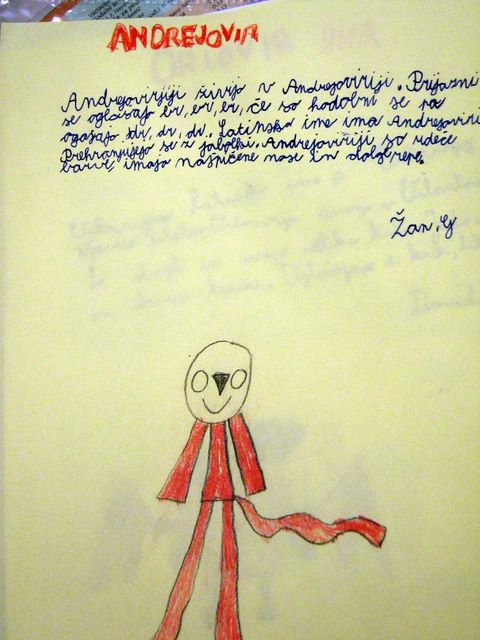 ANDREJOVIA
Andrejovirjiji živijo v Andrejoviriji. Prijazni
se oglašajo br, br, br, če so hudobni se pa
ogašajo dr, dr, dr. Latinsko ime ima Andrejoviri
Prehranjujejo se z jabolki. Andrejovirji so rdeče
barve, imajo našpičene nose in dolge repe.
Žan. G